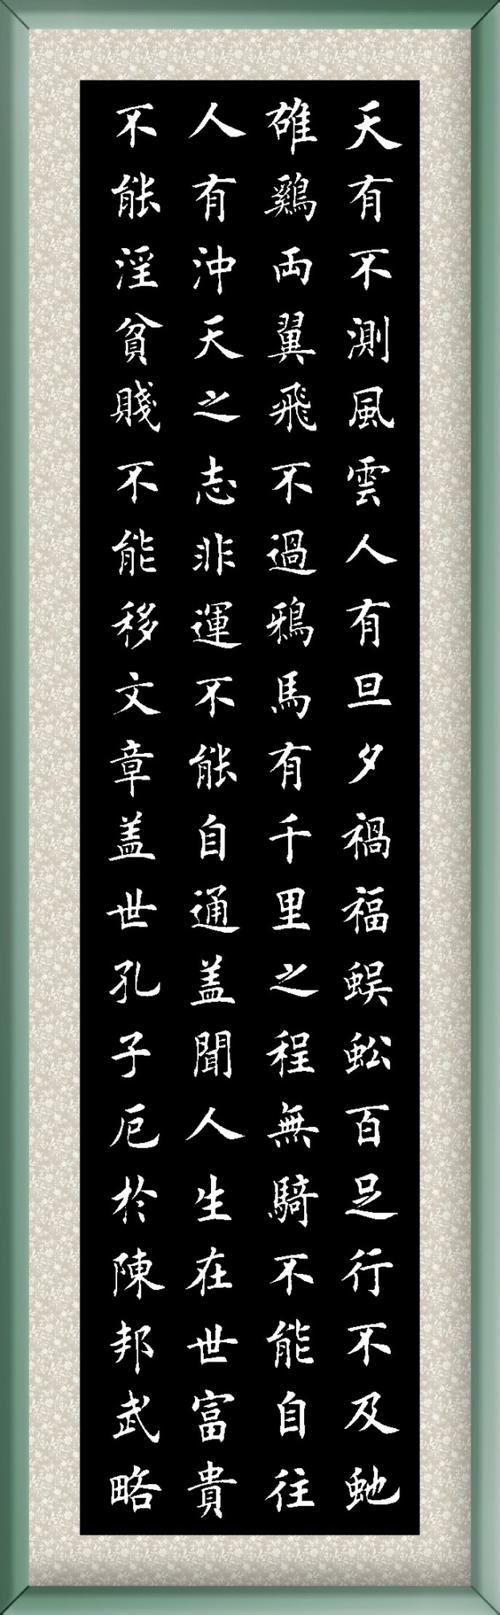 天有不測風雲人有旦夕禍福蜈蚣百足行不及虵
雄鷄両翼飛不過鴉馬有千里之程無騎不能自往
人有沖天之志非運不能自通盖聞人生在世富貴
不能淫貧賤不能移文章盖世孔子厄於陳邦武略